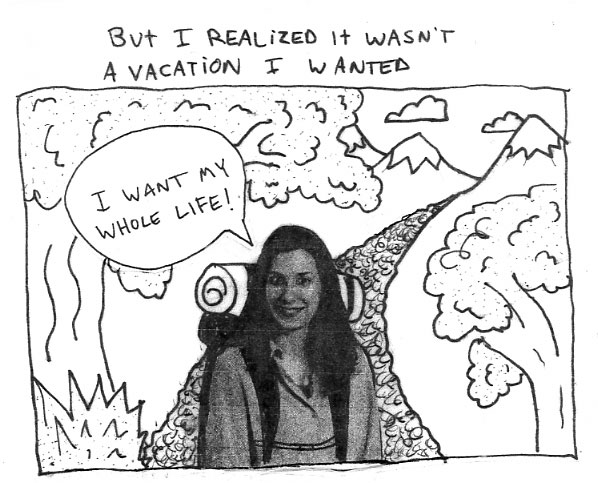 BUT I REALIZED IT WASN'T
A VACATION I WANTED
I WANT MY
WHOLE LIFE!